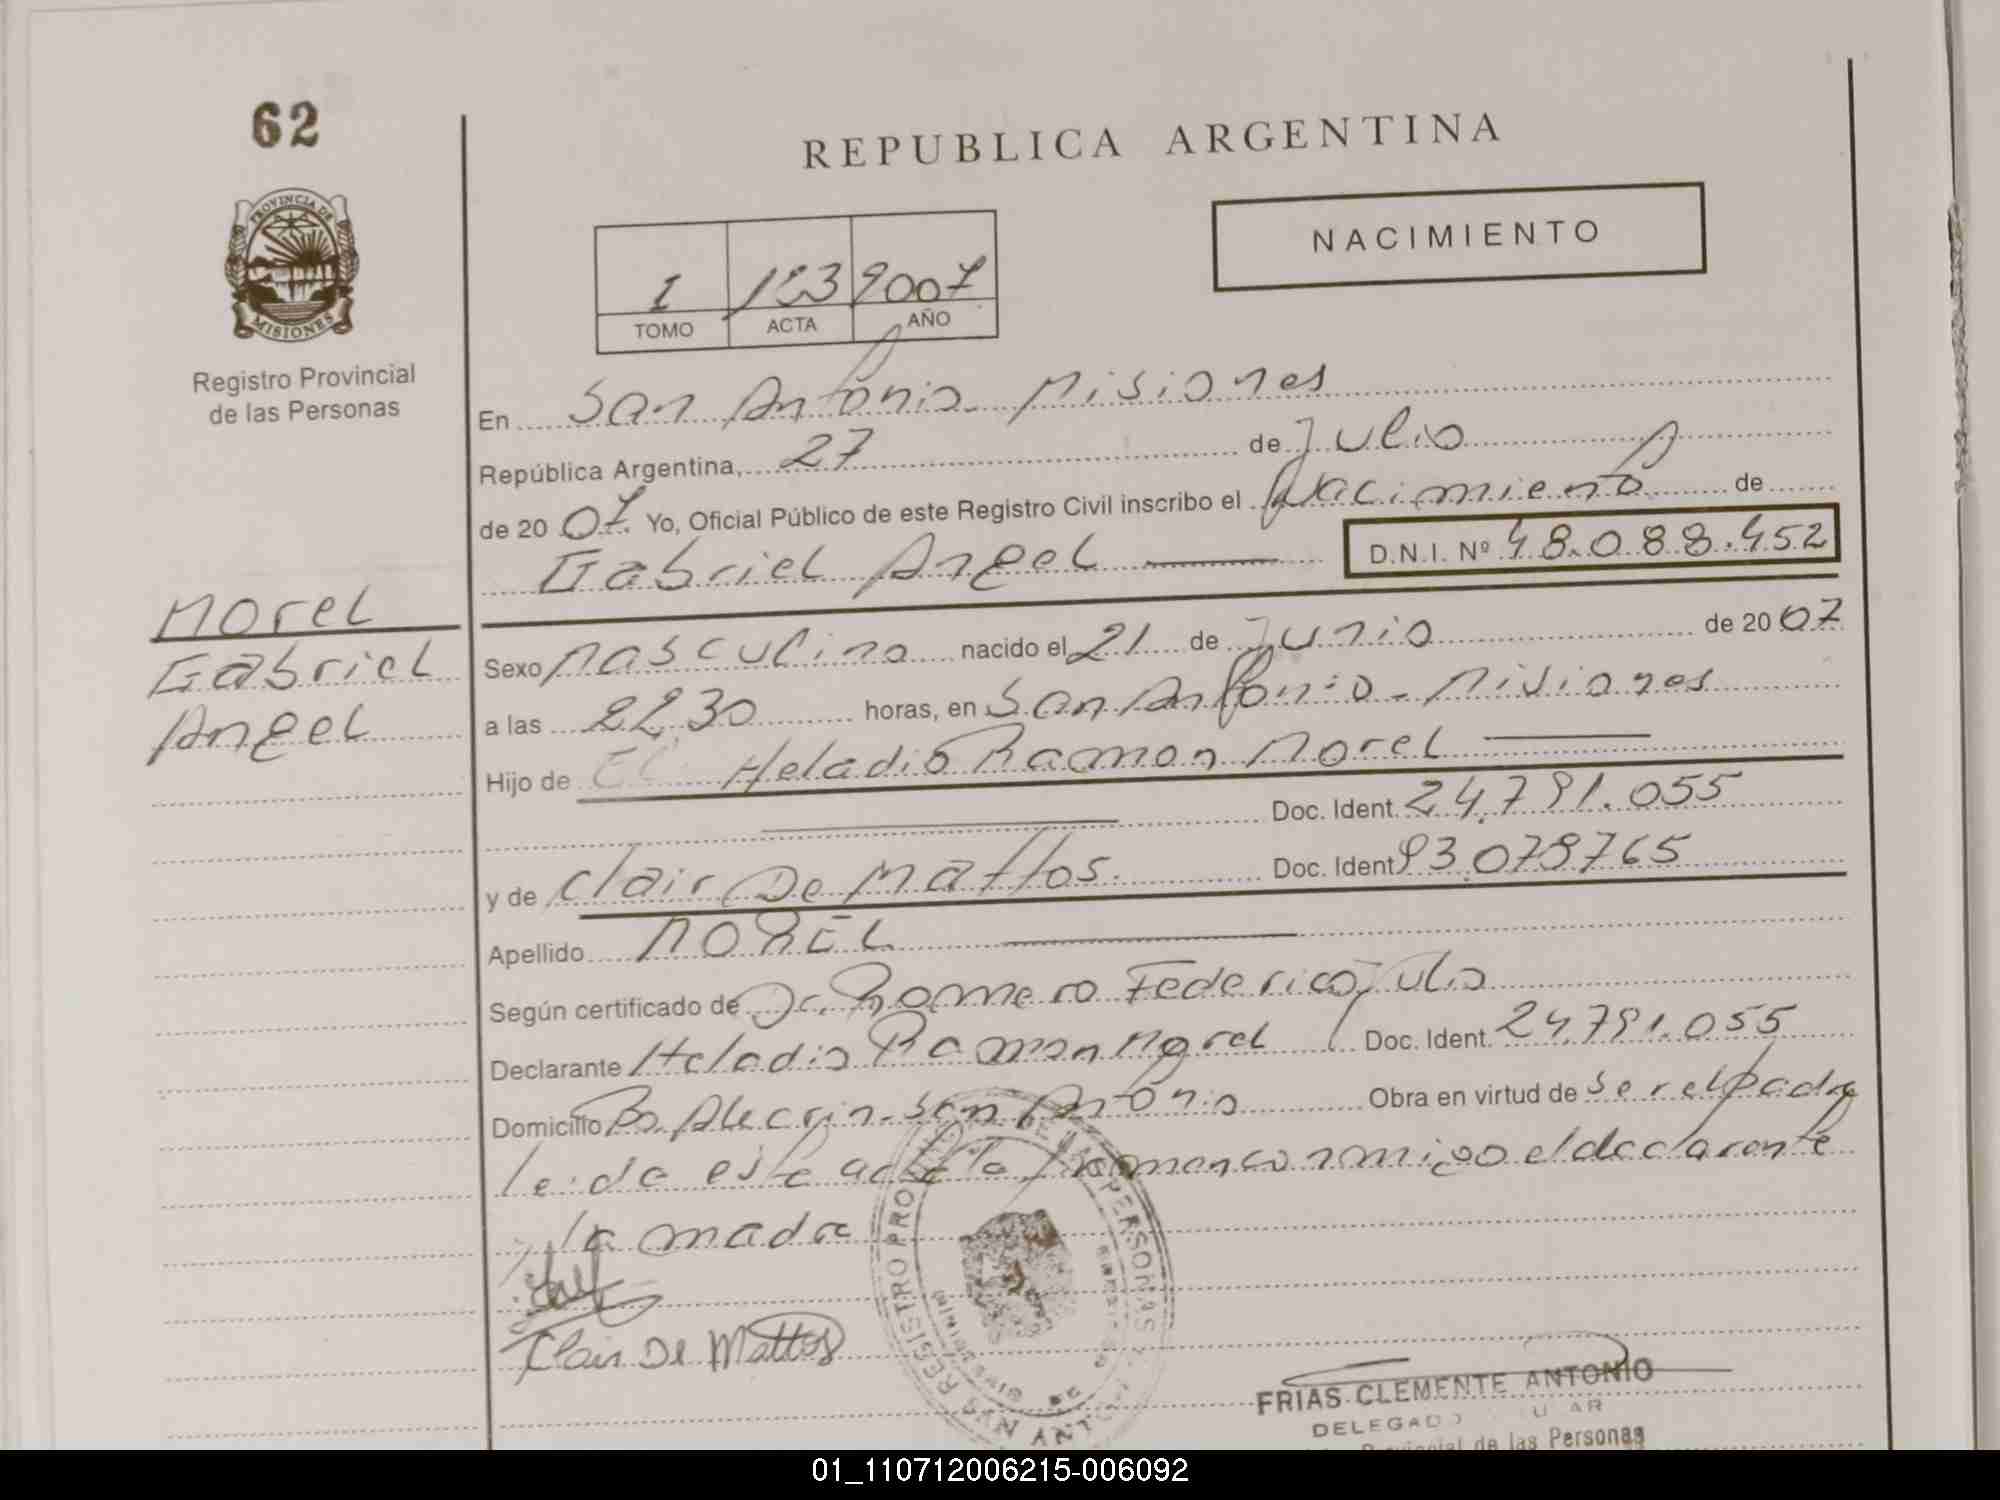 62
PROVINCIA DE
MISIONES
Registro Provincial
de las Personas
REPUBLICA ARGENTINA
NACIMIENTO
1 123 2007
TOMO ACTA AÑO
En San Antonio Misiones
República Argentina, 27 de Julio
de 20 07 Yo, Oficial Público de este Registro Civil inscribo el Nacimiento de
Gabriel Angel D.N.I. Nº 48.088.452
Morel
Gabriel
Angel
Sexo Masculino nacido el 21 de Junio de 20 07
a las 22 30 horas, en San Antonio - Misiones
Hijo de Heladio Ramon Morel
Doc. Ident. 24.791.055
y de Clair De Mattos. Doc. Ident 93.079765
Apellido MOREL
Según certificado de Dr. Romero Federico Julio
Declarante Heladio Ramon Morel Doc. Ident. 24.791.055
Domicilio Bo. Alecrin - San Antonio Obra en virtud de ser el Padre
leida este acta la firman conmigo el declarante
y la madre
Clair De Mattos
REGISTRO PERSONAS
SAN
FRIAS CLEMENTE ANTONIO
DELEGADO
Provincial de las Personas
01_110712006215-006092